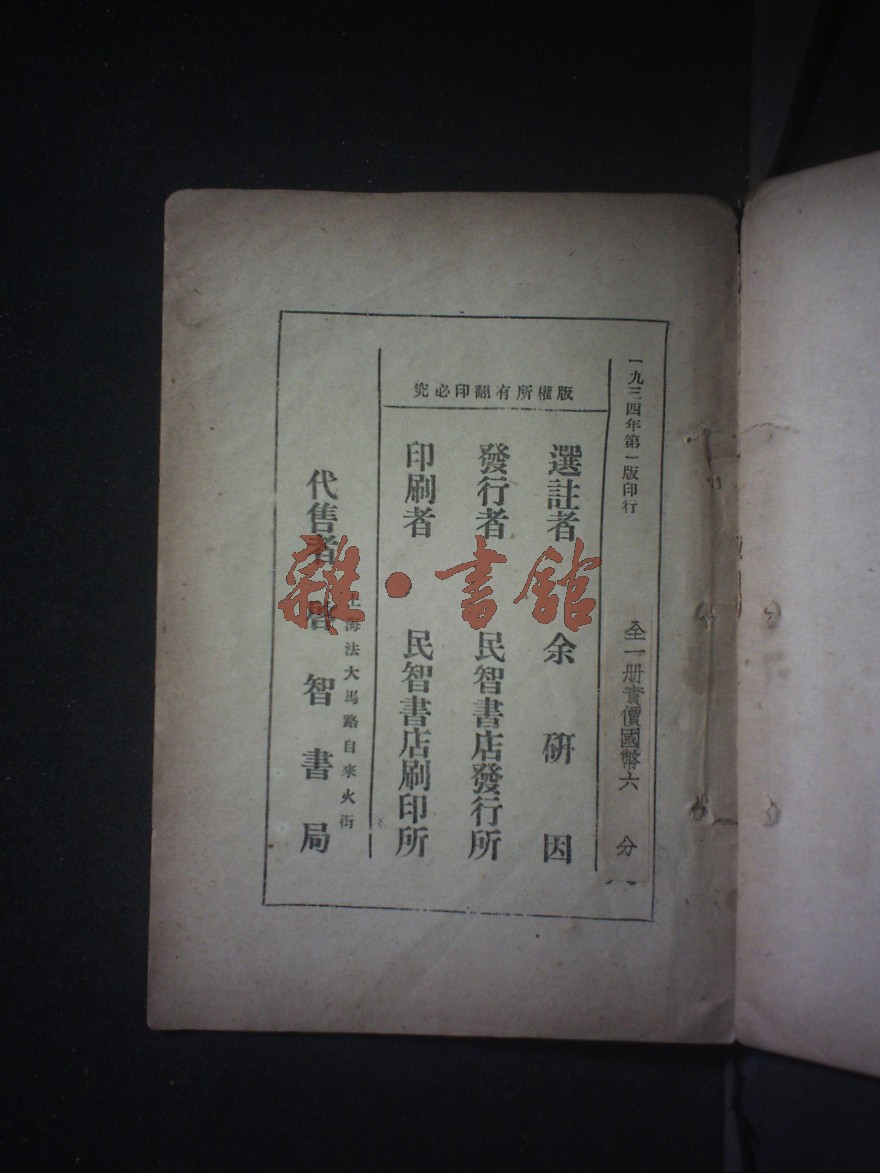 一九三四年第一版印行
全一册實價國幣六分
版權所有翻印必究
選註者 余研因
發行者 民智書店發行所
印刷者 民智書店刷印所
上海法大馬路自來火街
代售者 啓智書局
雜·書館